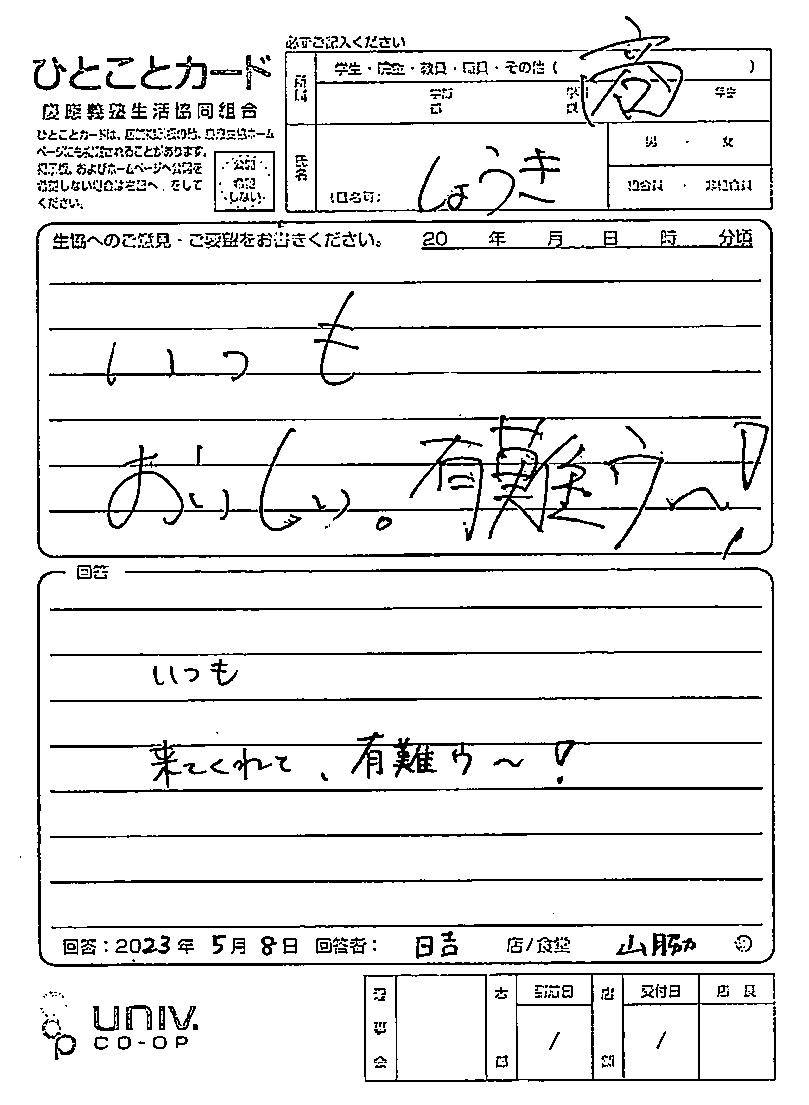 必ずご記入ください
ひとことカード
慶應義塾生活協同組合
ひとことカードは、
ページにも
およびホームページへ
希望しない場合は右图へ
ください。
公開
希望
しない
所属
学生・院生・教員・職員・その他（ ）
商
学部
学年
氏名
しょうき
男 ・ 女
組合員 ・ 非組合員
生協へのご意見・ご要望をお書きください。
20 年 月 日 時 分頃
いつも
おいしい。有難ウ〜!
回答
いつも
来てくれて、有難ウ〜!
回答：2023年 5月 8日 回答者： 日吉 店/食堂 山脇
理事会
店
受付日
店長
/ /
UNIV.
CO-OP